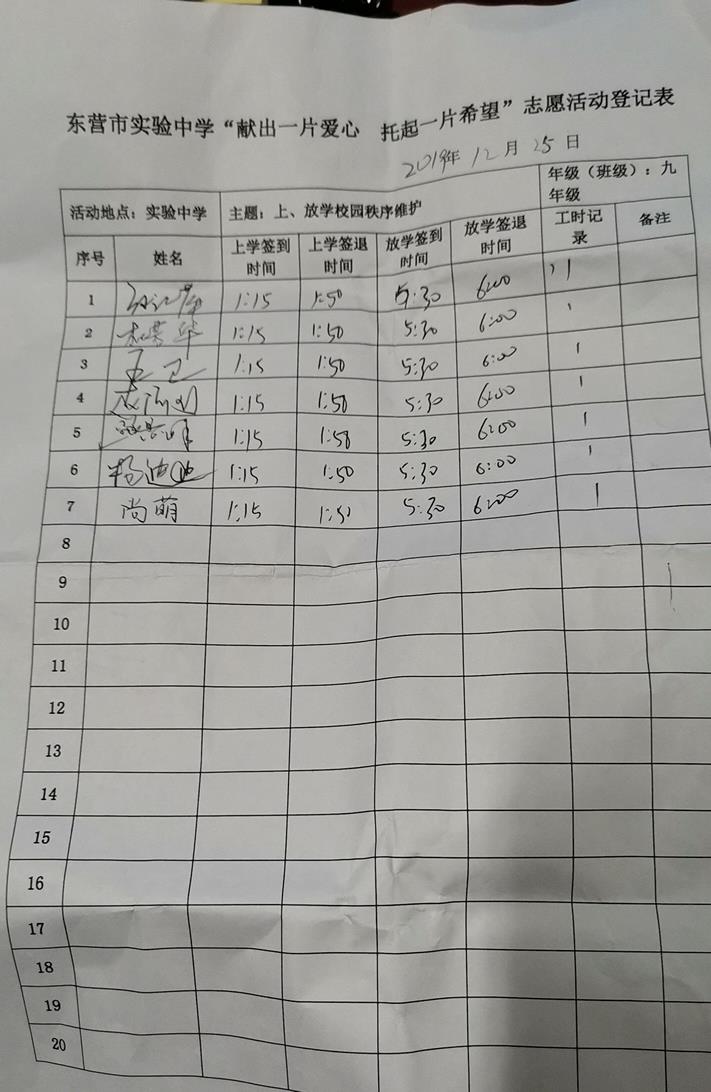 东营市实验中学“献出一片爱心 托起一片希望”志愿活动登记表
2019年 12月 25日
活动地点：实验中学 主题：上、放学校园秩序维护 年级（班级）：九年级
序号 姓名 上学签到时间 上学签退时间 放学签到时间 放学签退时间 工时记录 备注
1 1:15 1:50 5:30 6:00 1
2 1:15 1:50 5:30 6:00 1
3 王卫 1:15 1:50 5:30 6:00 1
4 1:15 1:50 5:30 6:00 1
5 1:15 1:50 5:30 6:00 1
6 杨迪 1:15 1:50 5:30 6:00 1
7 尚萌 1:15 1:50 5:30 6:00 1
8
9
10
11
12
13
14
15
16
17
18
19
20